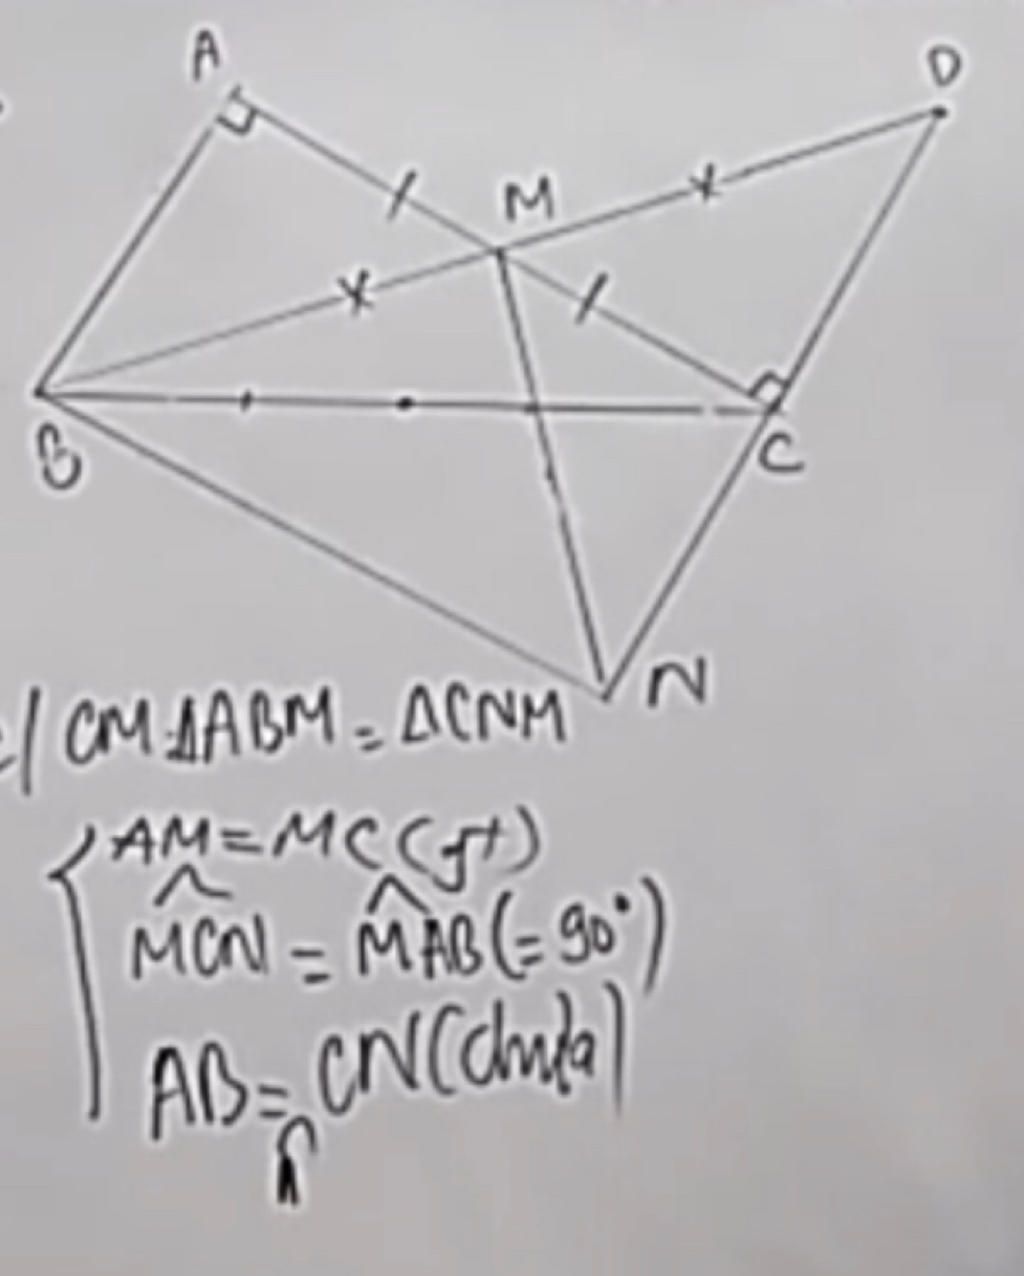 A
D
M
B
C
N
c/ CM ΔABM = ΔCNM
AM = MC (gt)
MCN = MAB (= 90°)
AB = CN (cmt)